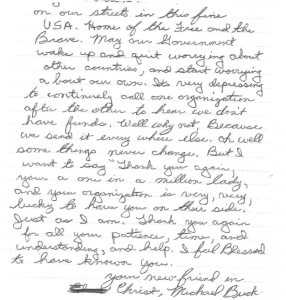 on our streets in this fine
USA. Home of the Free and the
Brave. May our Government
wake up and quit worrying about
other countries, and start worrying
about our own. Its very depressing
to continuely call one organization
after the other to hear we don't
have funds. Well why not, Because
we send it every where else. Oh well
some things never change. But I
want to say "Thank you again
your a one in a million lady,
and your organization is very, very,
lucky to have you on their side.
Just as I am. Thank you again
for all your patience, time, and
understanding, and help. I feel Blessed
to have known you.
your new friend in
Christ, Michael Buck